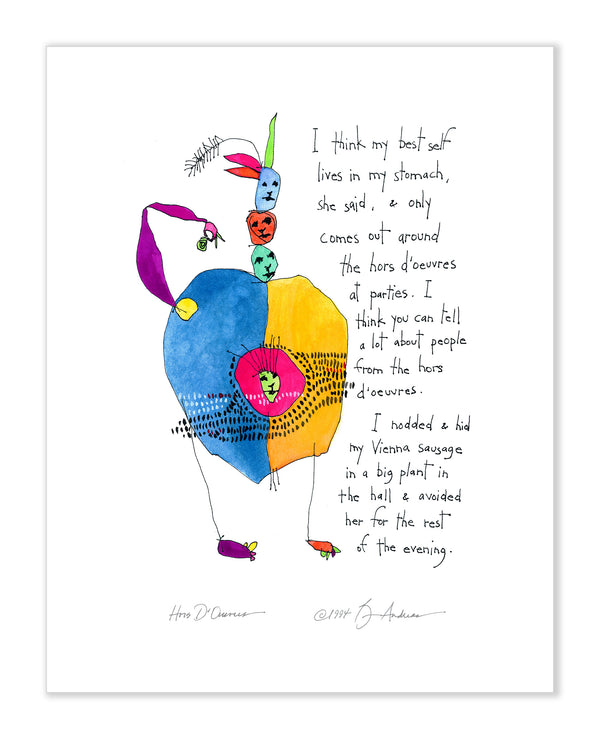 I think my best self
lives in my stomach,
she said, & only
comes out around
the hors d'oeuvres
at parties. I
think you can tell
a lot about people
from the hors
d'oeuvres.
I nodded & hid
my Vienna sausage
in a big plant in
the hall & avoided
her for the rest
of the evening.
Hors D'Oeuvres
©1994 Andreas